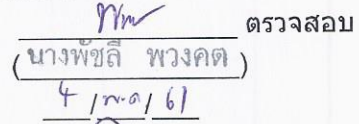 ตรวจสอบ
(นางพัชลี พวงคต)
4 / พ.ค / 61